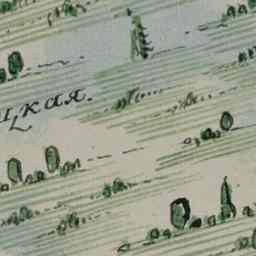 цкая.